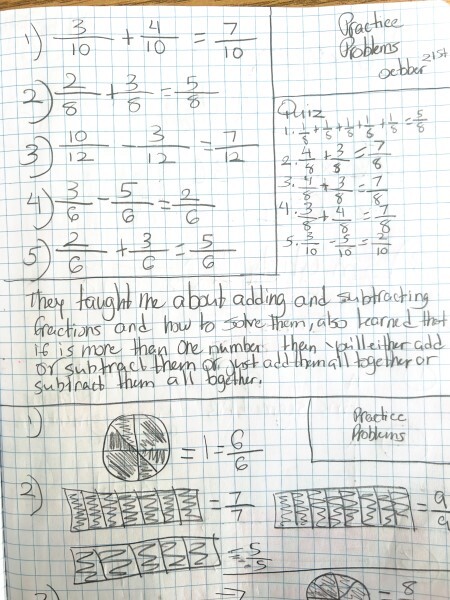 1) 3/10 + 4/10 = 7/10
2) 2/8 + 3/8 = 5/8
3) 10/12 - 3/12 = 7/12
4) 3/6 - 5/6 = 2/6
5) 2/6 + 3/6 = 5/6
Practice
Problems
october 21st
Quiz
1. 1/8 + 1/8 + 1/8 + 1/8 + 1/8 = 5/8
2. 4/8 + 3/8 = 7/8
3. 4/8 + 3/8 = 7/8
4. 3/8 + 4/8 = 7/8
5. 3/10 - 5/10 = 2/10
They taught me about adding and subtracting
fractions and how to solve them, also learned that
if is more then one number then you'll either add
or subtract them or just add them all together or
subtract them all together.
Practice
Problems
1) = 1 = 6/6
2) = 7/7 = 9/9
= 5/5
→ = 8